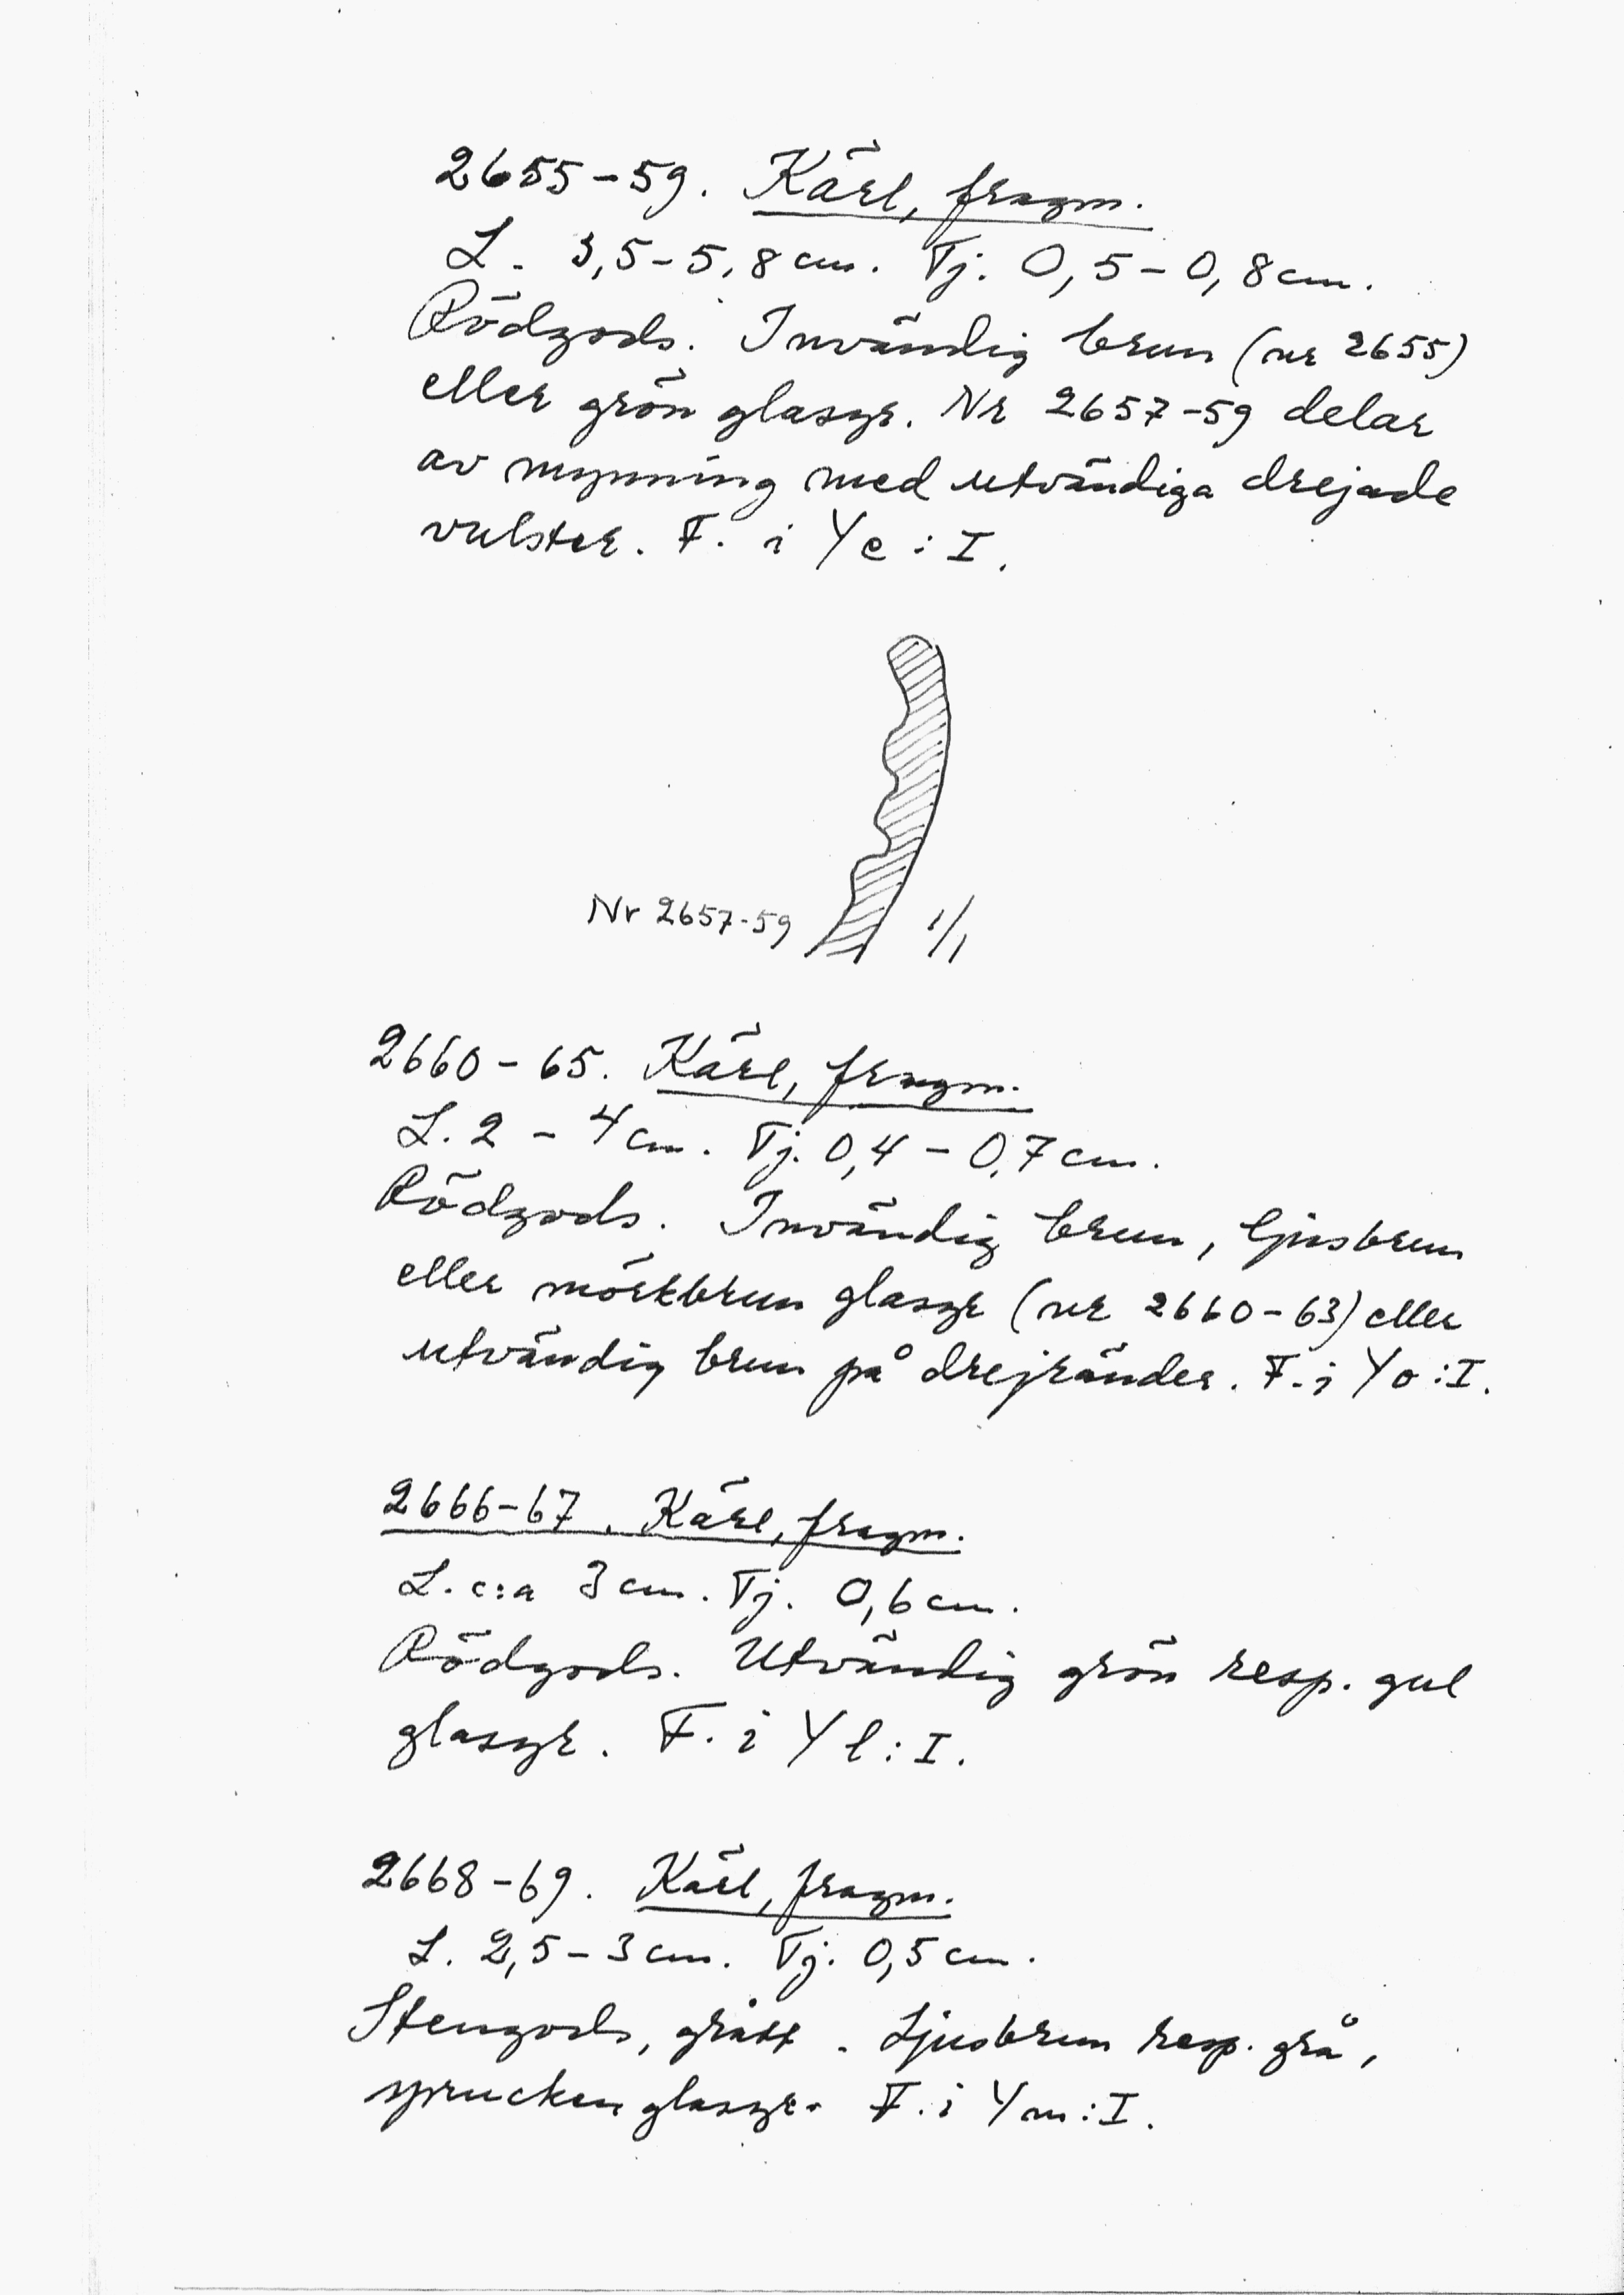 2655-59. Kärl, fragm.
L. 3,5-5,8 cm. Tj. 0,5-0,8 cm.
Rödgods. Invändig brun (nr 2655)
eller grön glasyr. Nr 2657-59 delar
av mynning med utvändiga drejade
vulster. F. i Ye:I.
Nr 2657-59 1/1
2660-65. Kärl, fragm.
L. 2 - 4 cm. Tj. 0,4 - 0,7 cm.
Rödgods. Invändig brun, ljusbrun
eller mörkbrun glasyr (nr 2660-63) eller
utvändig brun på drejränder. F. i Yo:I.
2666-67. Kärl, fragm.
L. c:a 3 cm. Tj. 0,6 cm.
Rödgods. Utvändig grön resp. gul
glasyr. F. i Yl:I.
2668-69. Kärl, fragm.
L. 2,5-3 cm. Tj. 0,5 cm.
Stengods, grått. Ljusbrun resp. grå,
sprucken glasyr. F. i Ym:I.